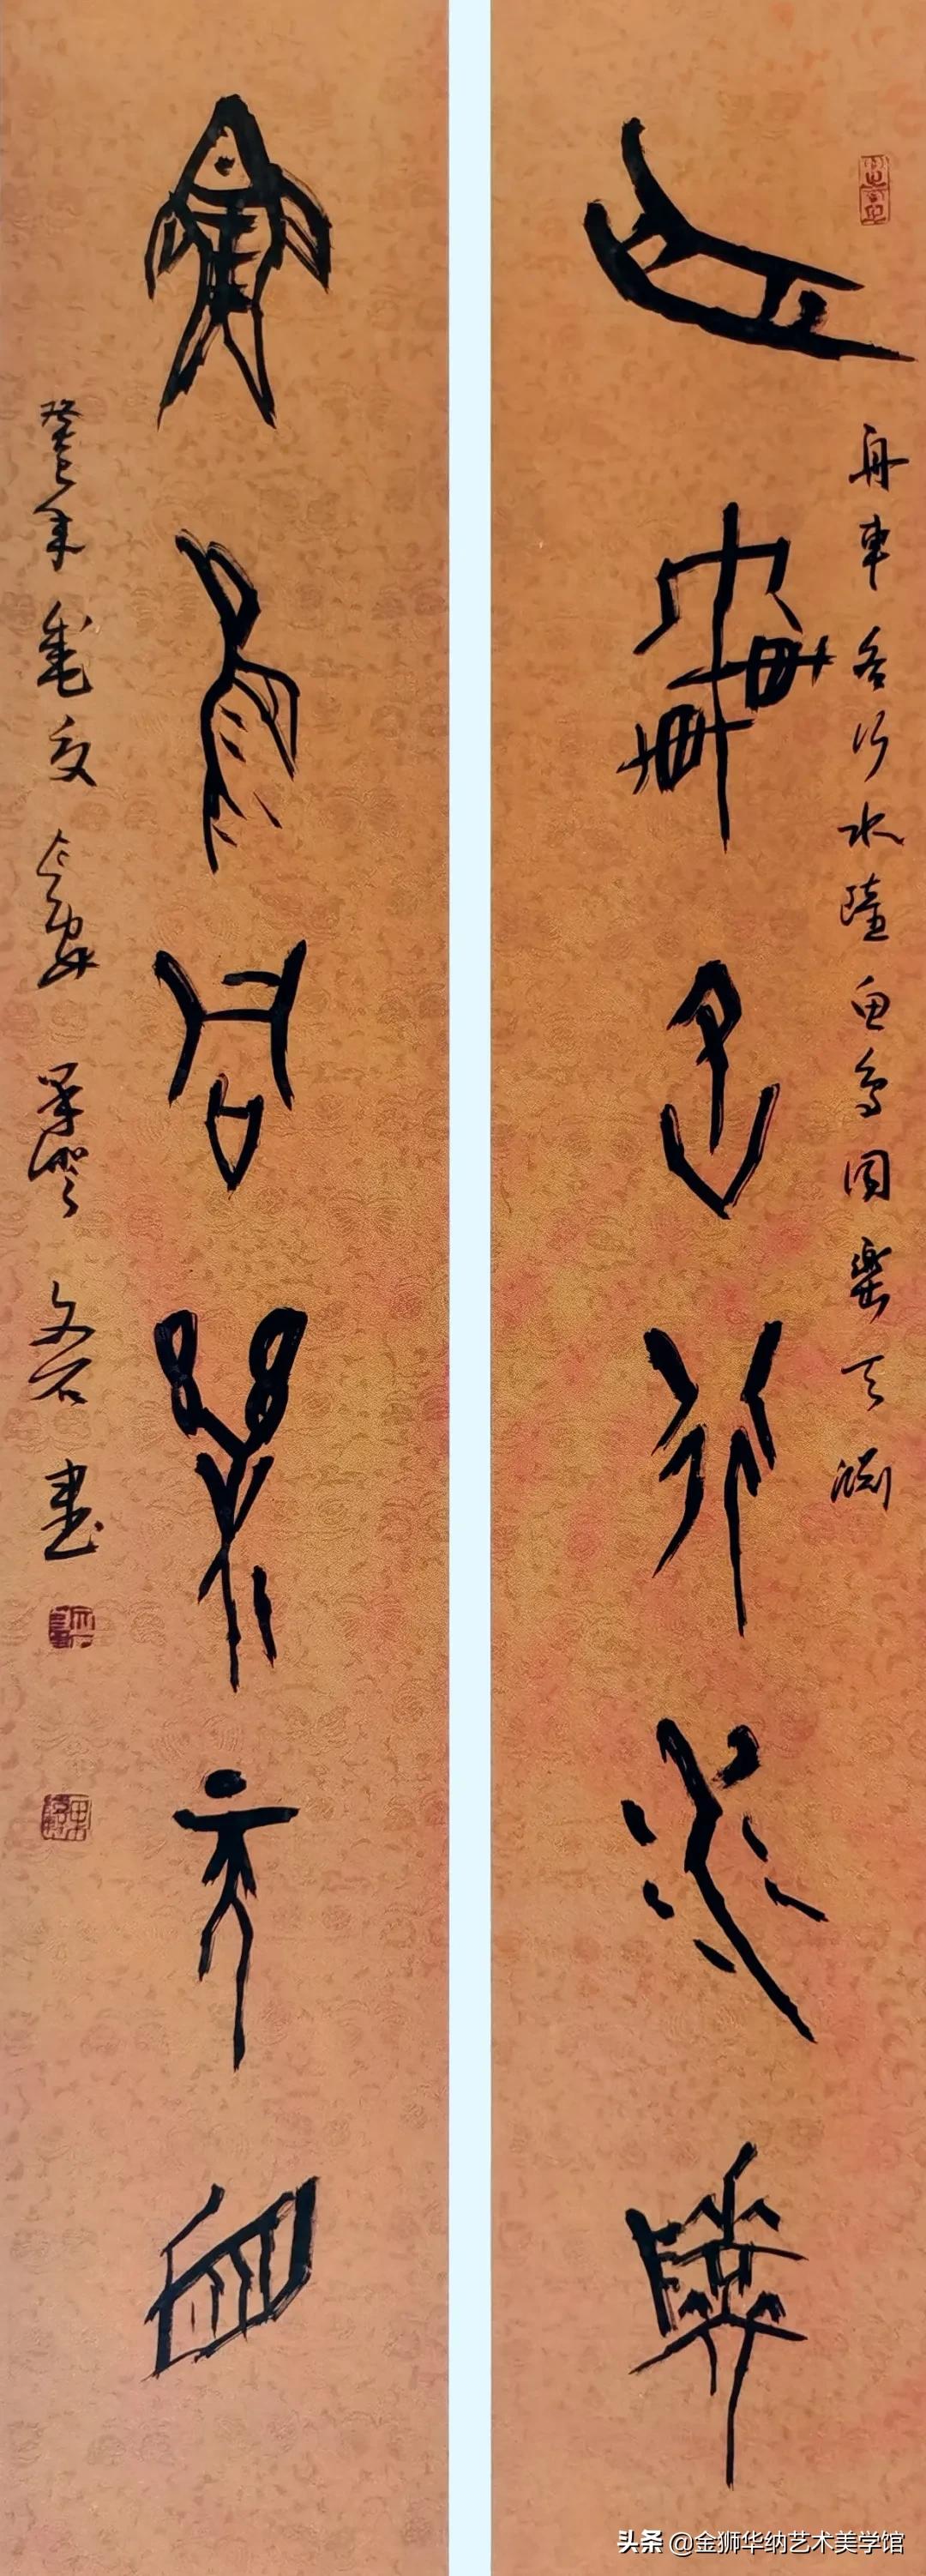 舟車各行水陸魚鳥同樂天淵
舟車各行水陸
魚鳥同樂天淵
癸巳年 書
头条 @金狮华纳艺术美学馆